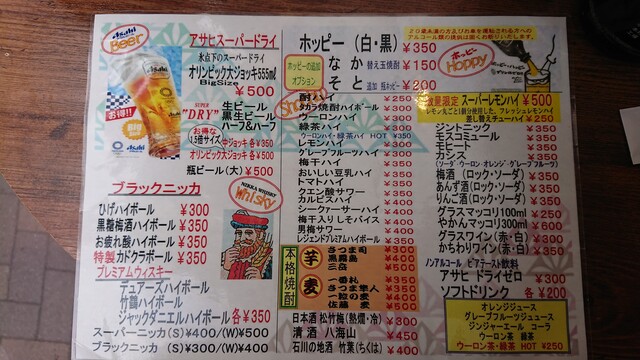 Asahi
Beer
アサヒスーパードライ
氷点下のスーパードライ
オリンピック大ジョッキ555㎖
BigSize
¥500
SUPER
"DRY"
生ビール
黒生ビール
ハーフ&ハーフ
お得!!
お得な
1.5倍サイズ
中ジョッキ 各¥350
オリンピック大ジョッキ 各¥500
瓶ビール(大)¥500
ブラックニッカ
NIKKA WHISKY
Whisky
ひげハイボール ¥300
黒糖梅酒ハイボール ¥350
お疲れ酸ハイボール ¥350
特製カドクラボール ¥350
プレミアムウィスキー
デュアーズハイボール
竹鶴ハイボール
ジャックダニエルハイボール 各¥350
スーパーニッカ (S)¥400/(W)¥500
ブラックニッカ (S)¥300/(W)¥400
ホッピー(白・黒) ¥350
ホッピーの追加
オプション
なか 替え玉焼酎 ¥150
そと 追加 瓶ホッピー ¥200
酎ハイ
タカラ焼酎ハイボール ¥300
ウーロンハイ ¥300
緑茶ハイ ¥300
ウーロンハイ・緑茶ハイ HOT ¥350
レモンハイ ¥300
グレープフルーツハイ ¥300
梅干ハイ
おいしい豆乳ハイ ¥350
トマトハイ ¥350
クエン酸サワー ¥350
カルピスハイ
シークァーサーハイ
梅干入りしそバイス ¥400
男梅サワー
レジェンドプレミアムハイボール ¥350
本格焼酎
芋
さつま司 ¥300
黒霧島 ¥400
三岳 ¥500
麦
一番札
さつま隼人
一粒の麦
佐藤 麦 ¥500
日本酒 松竹梅(熱燗・冷) ¥300
清酒 八海山 ¥450
石川の地酒 竹葉(ちくは) ¥400
20歳未満の方及びお車を運転される方への
アルコール類の提供は固くお断りいたします。
ホッピー
Hoppy
数量限定 スーパーレモンハイ ¥500
レモン丸ごと1個分使用した、フレッシュレモンハイ
差し替えチューハイ ¥250
ジントニック ¥350
モスコミュール ¥350
モヒート ¥350
カシス ¥350
(ソーダ・ウーロン・オレンジ・グレープフルーツ)
梅酒(ロック・ソーダ) ¥350
あんず酒(ロック・ソーダ) ¥350
りんご酒(ロック・ソーダ) ¥350
グラスマッコリ100ml ¥250
やかんマッコリ300ml ¥600
グラスワイン(赤・白) ¥300
かちわりワイン(赤・白) ¥350
ノンアルコール ビアテースト飲料
アサヒ ドライゼロ ¥350
ソフトドリンク 各¥200
オレンジジュース
グレープフルーツジュース
ジンジャーエール コーラ
ウーロン茶 緑茶
ウーロン茶・緑茶 HOT ¥250